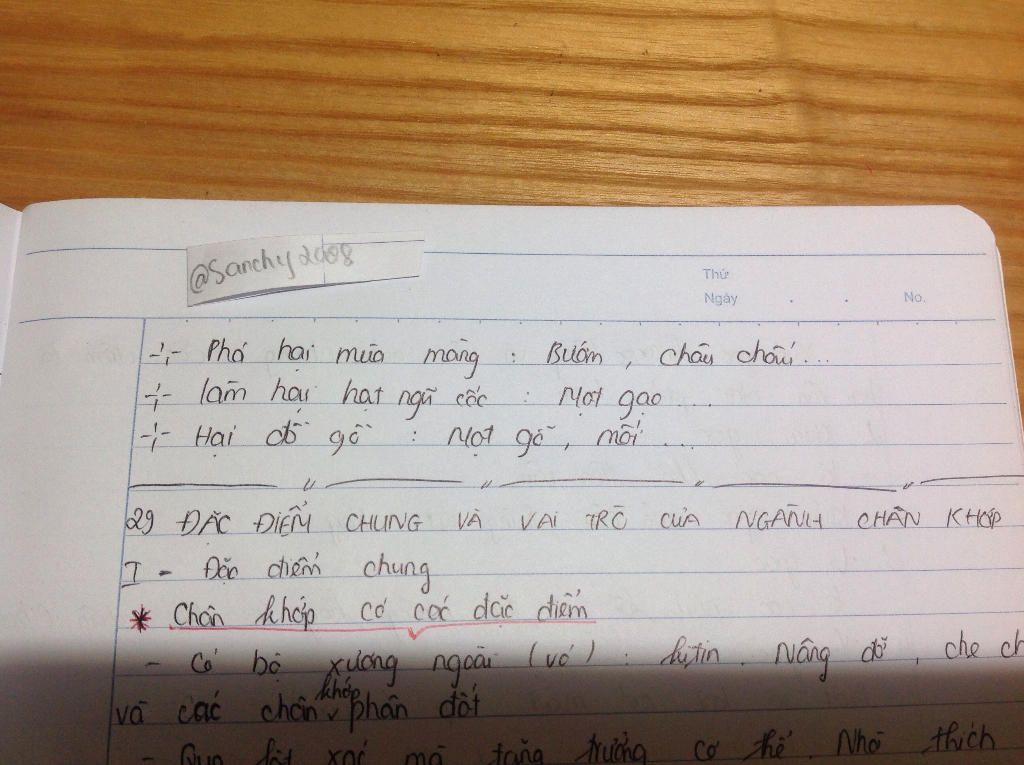 @Sanchy2008
Thứ
Ngày . . No.
-:- Phá hại mùa màng : Bướm , châu chấu...
-:- làm hại hạt ngũ cốc : Mọt gạo ...
-:- Hại đồ gỗ : Mọt gỗ, mối ...
29 ĐẶC ĐIỂM CHUNG VÀ VAI TRÒ CỦA NGÀNH CHÂN KHỚP
I - Đặc điểm chung
* Chân khớp có các đặc điểm
- Có bộ xương ngoài (vỏ) : kitin . Nâng đỡ , che ch
khớp
và các chân phân đốt
- Qua lột xác mà tăng trưởng cơ thể . Nhờ thích